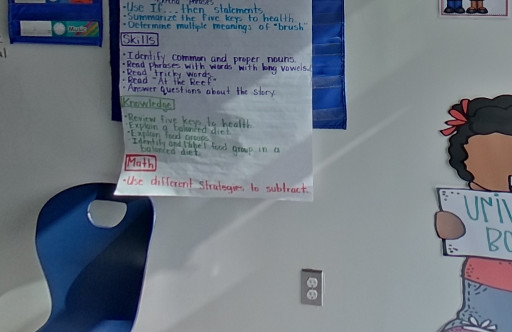 •Use If...then statements
•Summarize the five keys to health
•Determine multiple meanings of "brush"
Skills
•Identify common and proper nouns.
•Read phrases with words with long vowels.
•Read tricky words
•Read "At the Reef"
•Answer questions about the story.
Knowledge
•Review five keys to health.
•Explain a balanced diet.
•Explain food groups
•Identify and label food group in a
balanced diet
Math
•Use different strategies to subtract